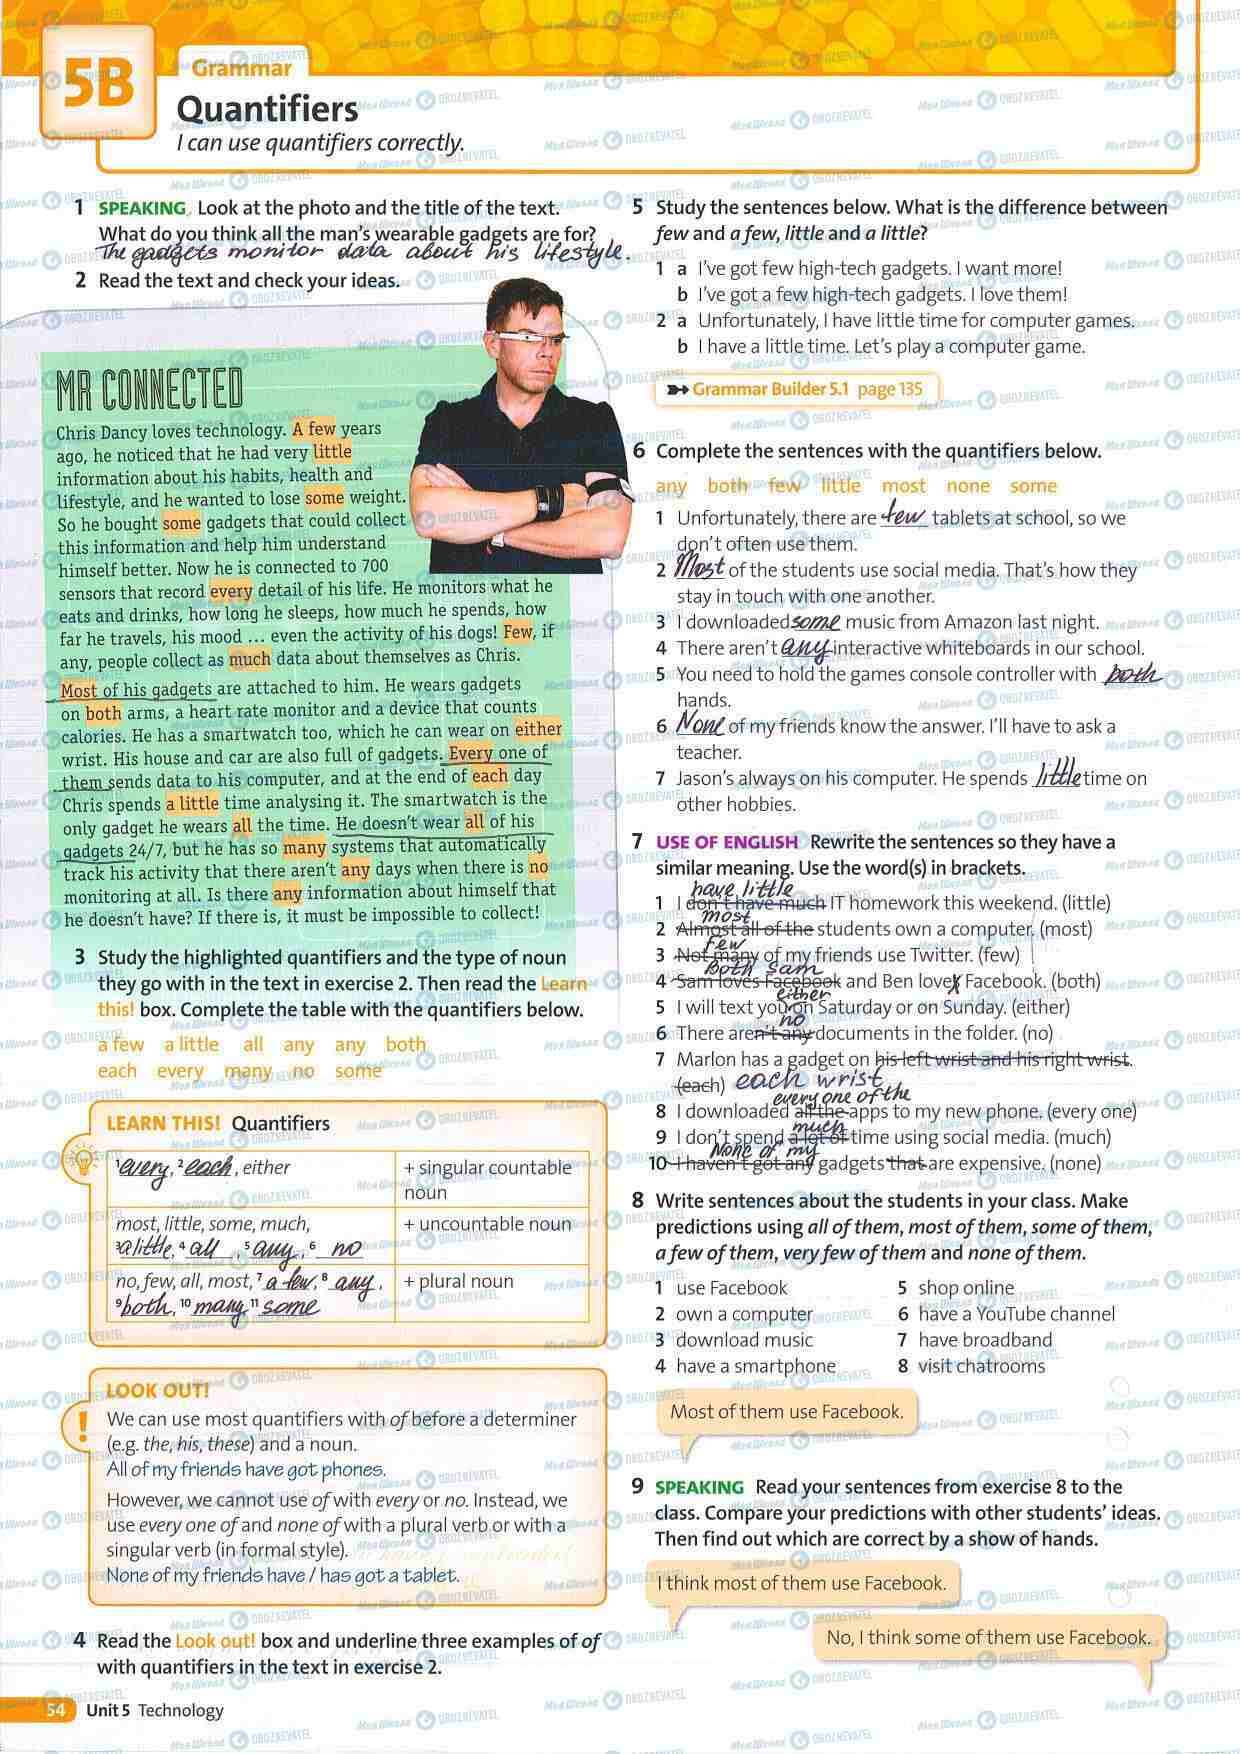 5B
Grammar
Quantifiers
I can use quantifiers correctly.
1 SPEAKING Look at the photo and the title of the text.
What do you think all the man's wearable gadgets are for?
The gadgets monitor data about his lifestyle.
2 Read the text and check your ideas.
MR CONNECTED
Chris Dancy loves technology. A few years
ago, he noticed that he had very little
information about his habits, health and
lifestyle, and he wanted to lose some weight.
So he bought some gadgets that could collect
this information and help him understand
himself better. Now he is connected to 700
sensors that record every detail of his life. He monitors what he
eats and drinks, how long he sleeps, how much he spends, how
far he travels, his mood ... even the activity of his dogs! Few, if
any, people collect as much data about themselves as Chris.
Most of his gadgets are attached to him. He wears gadgets
on both arms, a heart rate monitor and a device that counts
calories. He has a smartwatch too, which he can wear on either
wrist. His house and car are also full of gadgets. Every one of
them sends data to his computer, and at the end of each day
Chris spends a little time analysing it. The smartwatch is the
only gadget he wears all the time. He doesn't wear all of his
gadgets 24/7, but he has so many systems that automatically
track his activity that there aren't any days when there is no
monitoring at all. Is there any information about himself that
he doesn't have? If there is, it must be impossible to collect!
3 Study the highlighted quantifiers and the type of noun
they go with in the text in exercise 2. Then read the Learn
this! box. Complete the table with the quantifiers below.
a few a little all any any both
each every many no some
LEARN THIS! Quantifiers
1 every, 2 each, either + singular countable
noun
most, little, some, much, + uncountable noun
3 a little, 4 all, 5 any, 6 no
no, few, all, most, 7 a few, 8 any, + plural noun
9 both, 10 many 11 some
LOOK OUT!
! We can use most quantifiers with of before a determiner
(e.g. the, his, these) and a noun.
All of my friends have got phones.
However, we cannot use of with every or no. Instead, we
use every one of and none of with a plural verb or with a
singular verb (in formal style).
None of my friends have / has got a tablet.
4 Read the Look out! box and underline three examples of of
with quantifiers in the text in exercise 2.
54 Unit 5 Technology
5 Study the sentences below. What is the difference between
few and a few, little and a little?
1 a I've got few high-tech gadgets. I want more!
b I've got a few high-tech gadgets. I love them!
2 a Unfortunately, I have little time for computer games.
b I have a little time. Let's play a computer game.
Grammar Builder 5.1 page 135
6 Complete the sentences with the quantifiers below.
any both few little most none some
1 Unfortunately, there are few tablets at school, so we
don't often use them.
2 Most of the students use social media. That's how they
stay in touch with one another.
3 I downloaded some music from Amazon last night.
4 There aren't any interactive whiteboards in our school.
5 You need to hold the games console controller with both
hands.
6 None of my friends know the answer. I'll have to ask a
teacher.
7 Jason's always on his computer. He spends little time on
other hobbies.
7 USE OF ENGLISH Rewrite the sentences so they have a
similar meaning. Use the word(s) in brackets.
have little
1 I don't have much IT homework this weekend. (little)
most
2 Almost all of the students own a computer. (most)
few
3 Not many of my friends use Twitter. (few)
Both Sam
4 Sam loves Facebook and Ben loves Facebook. (both)
either
5 I will text you on Saturday or on Sunday. (either)
no
6 There aren't any documents in the folder. (no)
7 Marlon has a gadget on his left wrist and his right wrist.
(each) each wrist
every one of the
8 I downloaded all the apps to my new phone. (every one)
much
9 I don't spend a lot of time using social media. (much)
None of my
10 I haven't got any gadgets that are expensive. (none)
8 Write sentences about the students in your class. Make
predictions using all of them, most of them, some of them,
a few of them, very few of them and none of them.
1 use Facebook 5 shop online
2 own a computer 6 have a YouTube channel
3 download music 7 have broadband
4 have a smartphone 8 visit chatrooms
Most of them use Facebook.
9 SPEAKING Read your sentences from exercise 8 to the
class. Compare your predictions with other students' ideas.
Then find out which are correct by a show of hands.
I think most of them use Facebook.
No, I think some of them use Facebook.